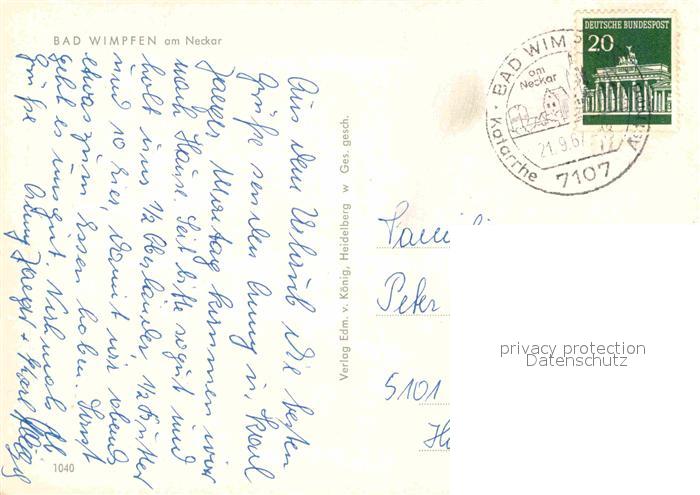 BAD WIMPFEN am Neckar
Aus dem Urlaub die besten
Grüße senden Anny u. Karl
Jaeger. Montag kommen wir
nach Hause. Seit bitte so gut und
holt uns 1/2 Oberländer, 1/2 Butter
und 10 Eier, damit wir abends
etwas zum Essen haben. Sonst
geht es uns gut. Nochmals
Grüße Anny Jaeger + Karl
1040
Verlag Edm. v. König, Heidelberg w Ges. gesch.
DEUTSCHE BUNDESPOST
20
BAD WIMPFEN
am
Neckar
21.9.67
Katarrhe
7107
Famili
Peter
5101
privacy protection
Datenschutz